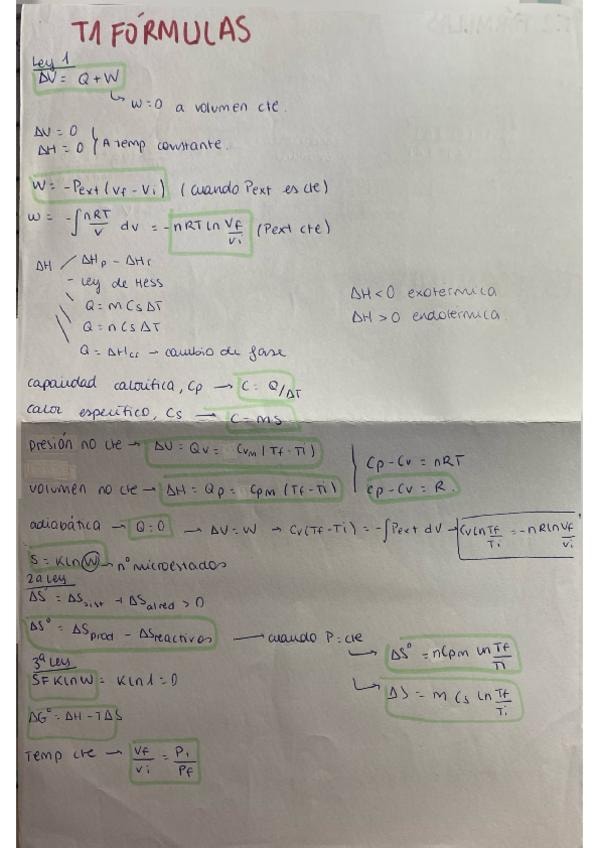 T1 FÓRMULAS
Ley 1
ΔU = Q + W
↳ W = 0 a volumen cte.
ΔU = 0
ΔH = 0 } A temp constante.
W = -Pext (Vf - Vi) (cuando Pext es cte)
W = -∫ nRT/V dv = -nRT Ln Vf/Vi (Pext cte)
ΔH / ΔHp - ΔHr
- Ley de Hess
\ Q = m Cs ΔT
\ Q = n Cs ΔT
Q = ΔHcf → cambio de fase
ΔH < 0 exotérmica
ΔH > 0 endotérmica.
capacidad calorífica, Cp → C = Q/ΔT
calor específico, Cs → C = m s
presión no cte → ΔU = Qv = Cvm (Tf - Ti)
volumen no cte → ΔH = Qp = Cpm (Tf - Ti)
Cp - Cv = nRT
Cp - Cv = R.
adiabática → Q = 0 → ΔU = W → Cv (Tf - Ti) = -∫ Pext dV → Cv Ln Tf/Ti = -nR Ln Vf/Vi
S = K Ln W → nº microestados
2a Ley
ΔS = ΔSsist + ΔSalred > 0
ΔSº = ΔSprod - ΔSreactivos → cuando P = cte
→ ΔSº = n Cpm Ln Tf/Ti
→ ΔS = m Cs Ln Tf/Ti
3ª Ley
SF K Ln W = K Ln 1 = 0
ΔGº = ΔH - TΔS
Temp cte → Vf/Vi = Pi/Pf